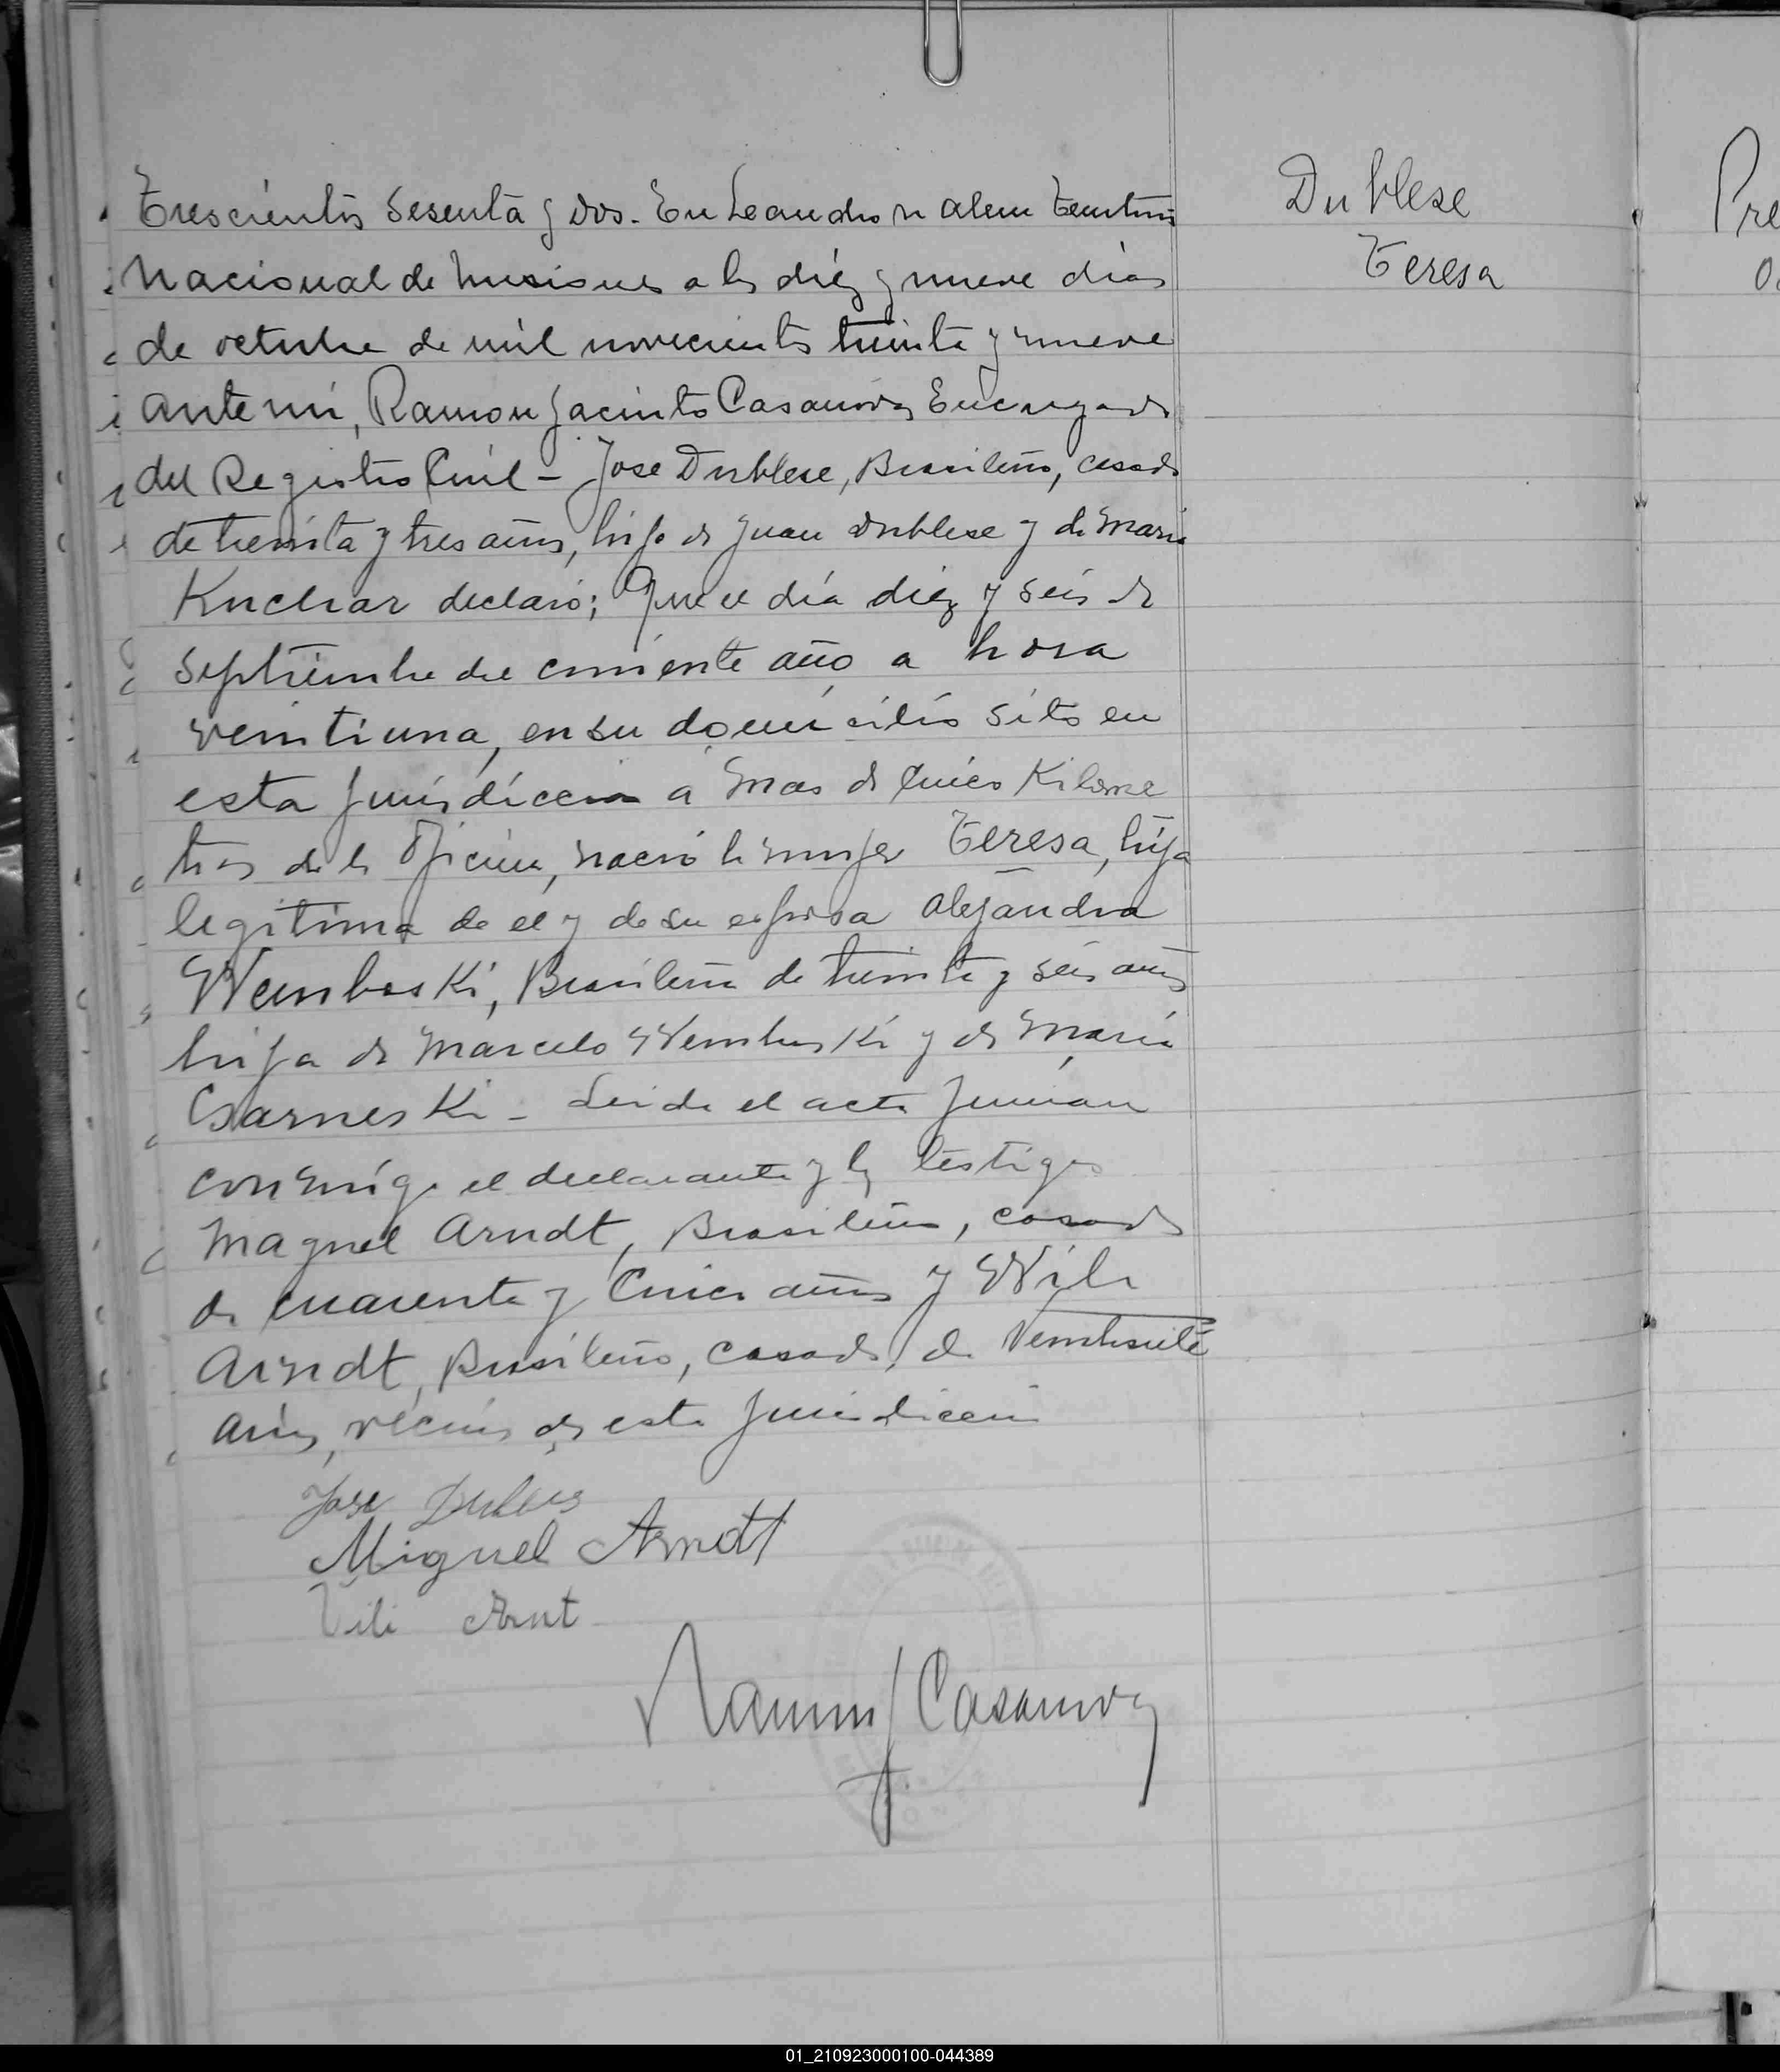 Trescientos sesenta y dos. En Leandro N Alem Territorio
Nacional de Misiones a los diéz y nueve días
de octubre de mil novecientos treinta y nueve
ante mi, Ramon Jacinto Casanova, Encargado
del Registro Civil - Jose Dublese, Brasileño, casado
de treinta y tres años, hijo de Juan Dublese y de Maria
Kuchar declaró; Que el día diéz y seis de
septiembre del corriente año a hora
veintiuna, en su domicilio sito en
esta jurisdiccion a mas de cinco Kilome
tros de la Oficina, nació la mujer Teresa, hija
legitima de el y de su esposa Alejandra
Wemboski, Brasileña de treinta y seis años
hija de Marcelo Wemboski y de Maria
Csarneski - Leida el acta firman
conmigo el declarante y los testigos
Maguel Arndt, Brasileño, casado
de cuarenta y cinco años y Wili
Arndt, Brasileño, casado, de veintisiete
años, vecinos de esta jurisdiccion
Dublese
Teresa
Jose
Miguel Arndt
Vili Arnt
Ramon J Casanova
Pre
01_210923000100-044389